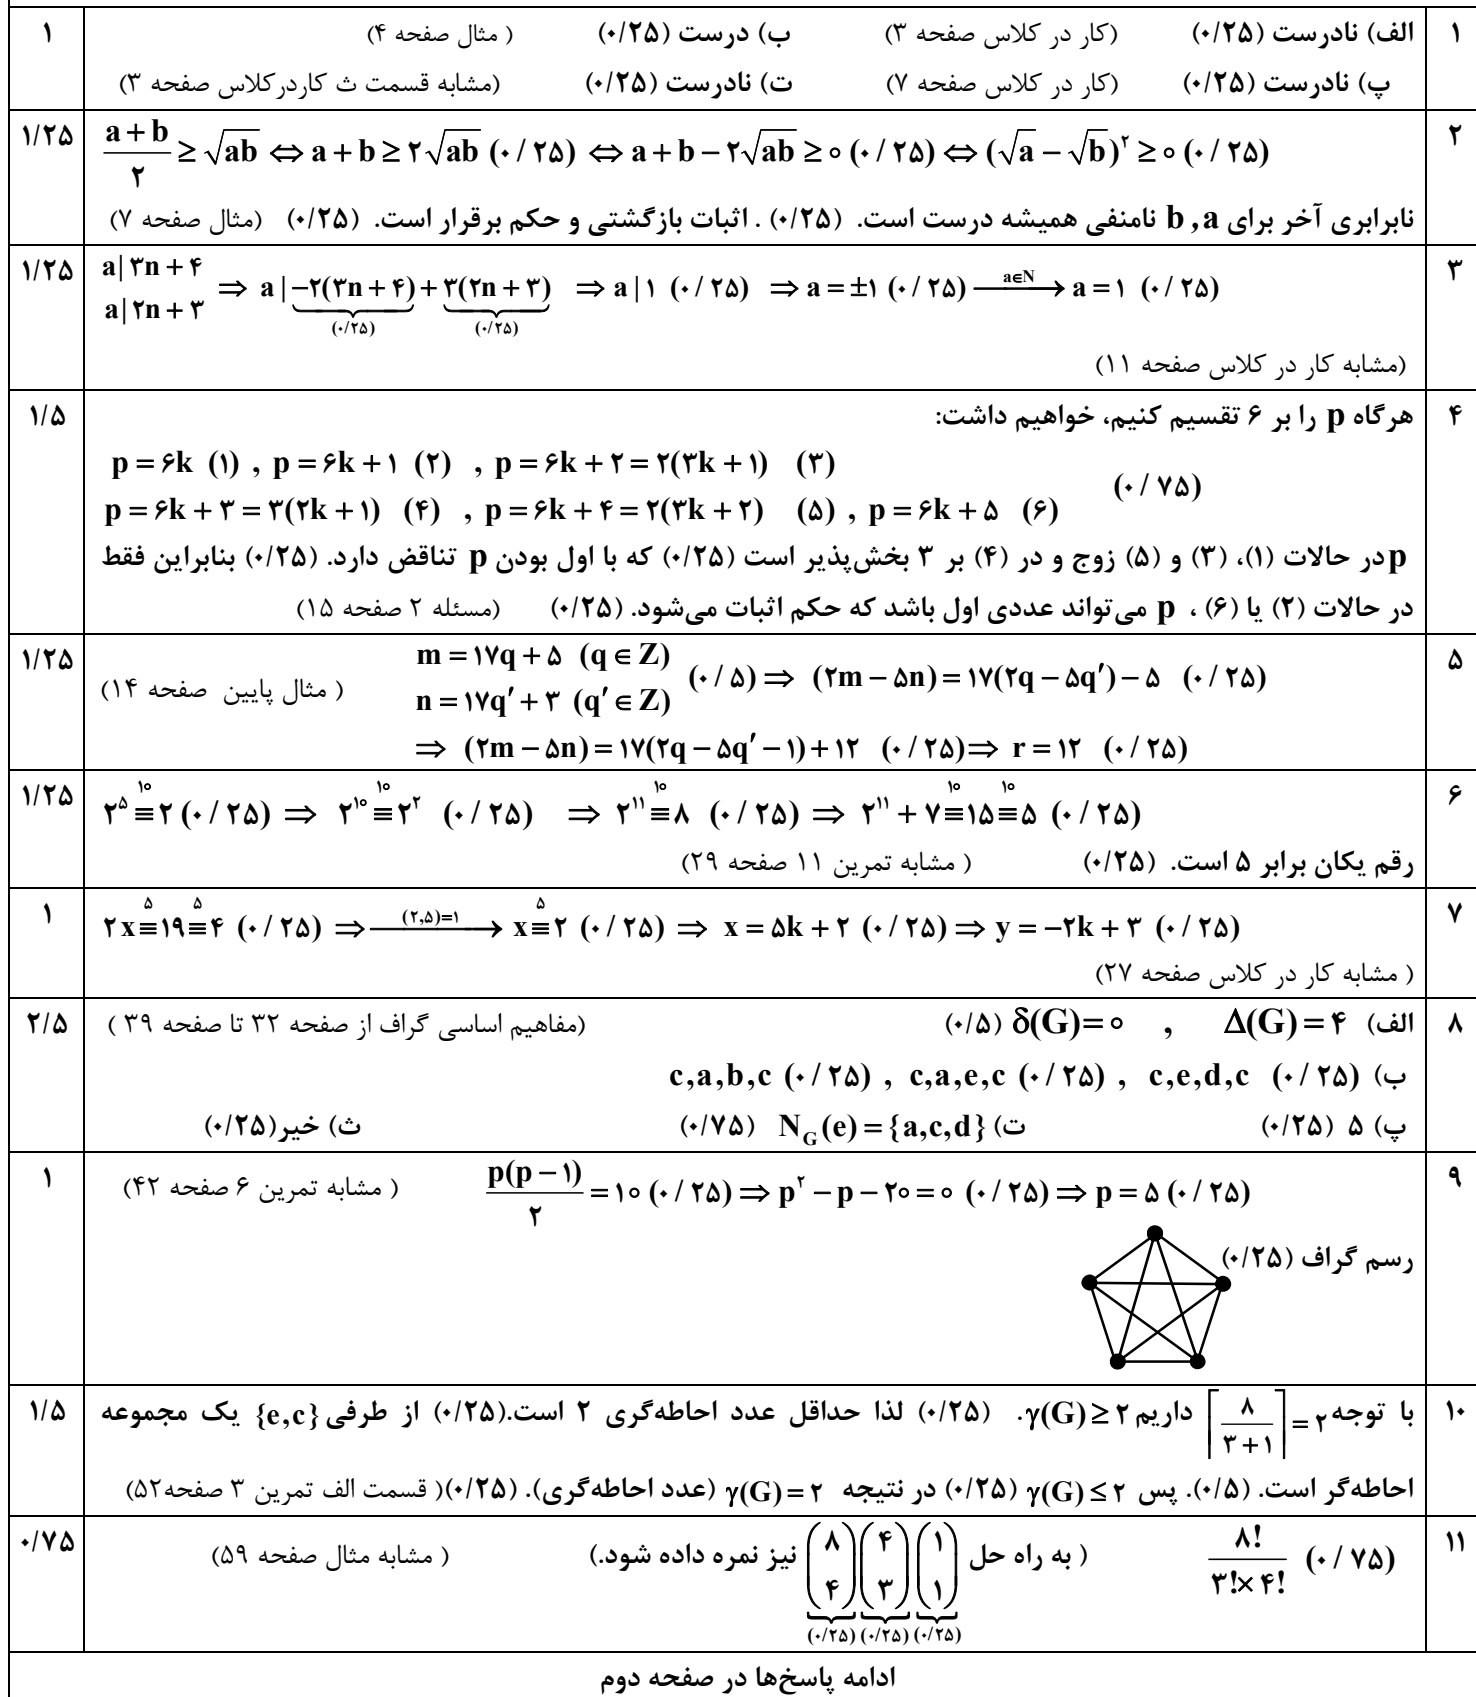 ۱ الف) نادرست (۰/۲۵) (کار در کلاس صفحه ۳) ب) درست (۰/۲۵) ( مثال صفحه ۴) ۱
پ) نادرست (۰/۲۵) (کار در کلاس صفحه ۷) ت) نادرست (۰/۲۵) (مشابه قسمت ث کاردرکلاس صفحه ۳)
۲ (a+b)/۲ ≥ √ab ⇔ a+b ≥ ۲√ab (۰/۲۵) ⇔ a+b−۲√ab ≥ ۰ (۰/۲۵) ⇔ (√a − √b)^۲ ≥ ۰ (۰/۲۵) ۱/۲۵
نابرابری آخر برای b , a نامنفی همیشه درست است. (۰/۲۵) . اثبات بازگشتی و حکم برقرار است. (۰/۲۵) (مثال صفحه ۷)
۳ a|۳n+۴ a|۲n+۳ ⇒ a|−۲(۳n+۴) (۰/۲۵) + ۳(۲n+۳) (۰/۲۵) ⇒ a|۱ (۰/۲۵) ⇒ a=±۱ (۰/۲۵) —a∈N→ a=۱ (۰/۲۵) ۱/۲۵
(مشابه کار در کلاس صفحه ۱۱)
۴ هرگاه p را بر ۶ تقسیم کنیم، خواهیم داشت: ۱/۵
p=۶k (۱) , p=۶k+۱ (۲) , p=۶k+۲=۲(۳k+۱) (۳)
(۰/۷۵)
p=۶k+۳=۳(۲k+۱) (۴) , p=۶k+۴=۲(۳k+۲) (۵) , p=۶k+۵ (۶)
p در حالات (۱)، (۳) و (۵) زوج و در (۴) بر ۳ بخش‌پذیر است (۰/۲۵) که با اول بودن p تناقض دارد. (۰/۲۵) بنابراین فقط
در حالات (۲) یا (۶) ، p می‌تواند عددی اول باشد که حکم اثبات می‌شود. (۰/۲۵) (مسئله ۲ صفحه ۱۵)
۵ m=۱۷q+۵ (q∈Z) ۱/۲۵
n=۱۷q′+۳ (q′∈Z) (۰/۵) ⇒ (۲m−۵n)=۱۷(۲q−۵q′)−۵ (۰/۲۵) ( مثال پایین صفحه ۱۴)
⇒ (۲m−۵n)=۱۷(۲q−۵q′−۱)+۱۲ (۰/۲۵) ⇒ r=۱۲ (۰/۲۵)
۶ ۲^۵ ≡^۱۰ ۲ (۰/۲۵) ⇒ ۲^۱۰ ≡^۱۰ ۲^۲ (۰/۲۵) ⇒ ۲^۱۱ ≡ ۸ (۰/۲۵) ⇒ ۲^۱۱+۷ ≡^۱۰ ۱۵ ≡^۱۰ ۵ (۰/۲۵) ۱/۲۵
رقم یکان برابر ۵ است. (۰/۲۵) ( مشابه تمرین ۱۱ صفحه ۲۹)
۷ ۲x ≡^۵ ۱۹ ≡^۵ ۴ (۰/۲۵) ⇒ —(۲,۵)=۱→ x ≡^۵ ۲ (۰/۲۵) ⇒ x=۵k+۲ (۰/۲۵) ⇒ y=−۲k+۳ (۰/۲۵) ۱
( مشابه کار در کلاس صفحه ۲۷)
۸ الف) Δ(G)=۴ , δ(G)=۰ (۰/۵) (مفاهیم اساسی گراف از صفحه ۳۲ تا صفحه ۳۹ ) ۲/۵
ب) c,a,b,c (۰/۲۵) , c,a,e,c (۰/۲۵) , c,e,d,c (۰/۲۵)
پ) ۵ (۰/۲۵) ت) N_G(e)={a,c,d} (۰/۷۵) ث) خیر(۰/۲۵)
۹ p(p−۱)/۲ = ۱۰ (۰/۲۵) ⇒ p^۲−p−۲۰=۰ (۰/۲۵) ⇒ p=۵ (۰/۲۵) ( مشابه تمرین ۶ صفحه ۴۲) ۱
رسم گراف (۰/۲۵)
۱۰ با توجه ⌈۸/(۳+۱)⌉=۲ داریم γ(G)≥۲. (۰/۲۵) لذا حداقل عدد احاطه‌گری ۲ است.(۰/۲۵) از طرفی {e,c} یک مجموعه ۱/۵
احاطه‌گر است. (۰/۵). پس γ(G)≤۲ (۰/۲۵) در نتیجه γ(G)=۲ (عدد احاطه‌گری). (۰/۲۵)( قسمت الف تمرین ۳ صفحه۵۲)
۱۱ ۸!/(۳!×۴!) (۰/۷۵) ( به راه حل (۸ ۴)(۴ ۳)(۱ ۱) نیز نمره داده شود.) ( مشابه مثال صفحه ۵۹) ۰/۷۵
(۰/۲۵) (۰/۲۵) (۰/۲۵)
ادامه پاسخ‌ها در صفحه دوم